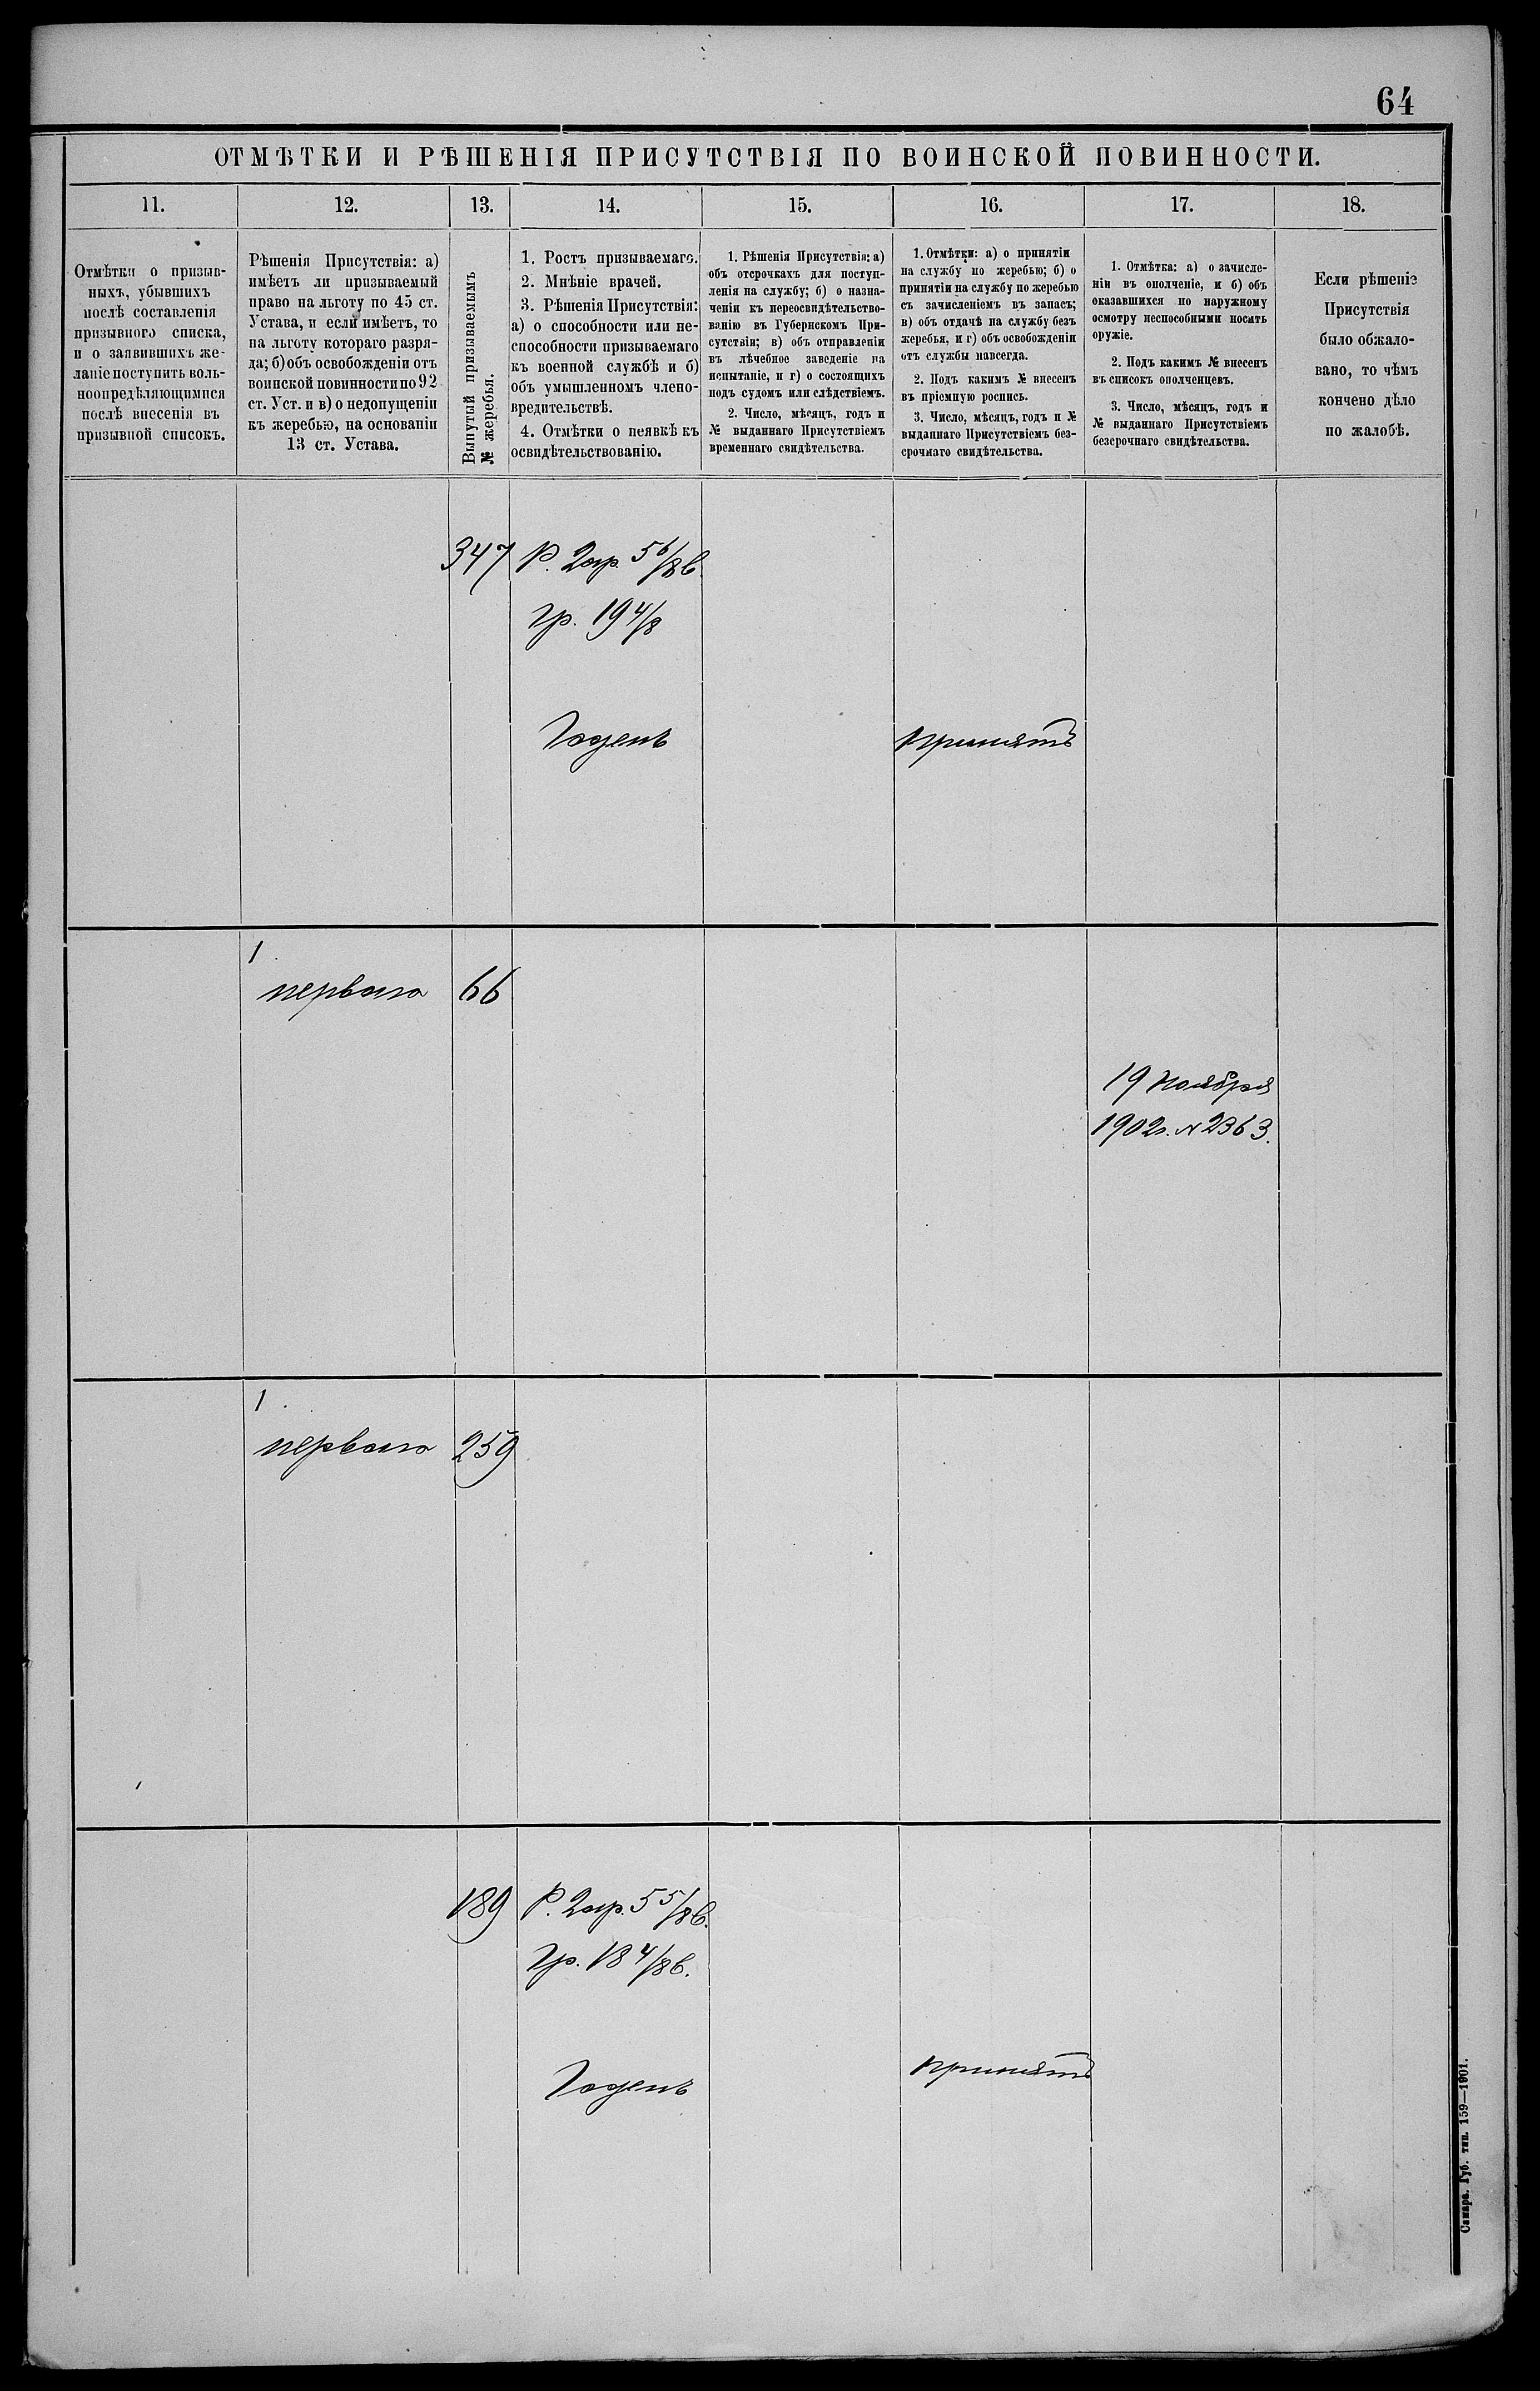 64
ОТМѢТКИ И РѢШЕНІЯ ПРИСУТСТВІЯ ПО ВОИНСКОЙ ПОВИННОСТИ.
11.
12.
13.
14.
15.
16.
17.
18.
Отмѣтки о призыв-
ныхъ, убывшихъ
послѣ составленія
призывного списка,
и о заявившихъ же-
ланіе поступить воль-
ноопредѣляющимися
послѣ внесенія въ
призывной списокъ.
Рѣшенія Присутствія: а)
имѣетъ ли призываемый
право на льготу по 45 ст.
Устава, и если имѣетъ, то
на льготу котораго разря-
да; б) объ освобожденіи отъ
воинской повинности по 92
ст. Уст. и в) о недопущеніи
къ жеребью, на основаніи
13 ст. Устава.
Вынутый призываемымъ
№ жеребья.
1. Ростъ призываемаго.
2. Мнѣніе врачей.
3. Рѣшенія Присутствія:
а) о способности или не-
способности призываемаго
къ военной службѣ и б)
объ умышленномъ члено-
вредительствѣ.
4. Отмѣтки о неявкѣ къ
освидѣтельствованію.
1. Рѣшенія Присутствія: а)
объ отсрочкахъ для поступ-
ленія на службу; б) о назна-
ченіи къ переосвидѣтельство-
ванію въ Губернскомъ При-
сутствіи; в) объ отправленіи
въ лѣчебное заведеніе на
испытаніе, и г) о состоящихъ
подъ судомъ или слѣдствіемъ.
2. Число, мѣсяцъ, годъ и
№ выданнаго Присутствіемъ
временнаго свидѣтельства.
1. Отмѣтки: а) о принятіи
на службу по жеребью; б) о
принятіи на службу по жеребью
съ зачисленіемъ въ запасъ;
в) объ отдачѣ на службу безъ
жеребья, и г) объ освобожденіи
отъ службы навсегда.
2. Подъ какимъ № внесенъ
въ пріемную роспись.
3. Число, мѣсяцъ, годъ и №
выданнаго Присутствіемъ без-
срочнаго свидѣтельства.
1. Отмѣтка: а) о зачисле-
ніи въ ополченіе, и б) объ
оказавшихся по наружному
осмотру неспособными носить
оружіе.
2. Подъ какимъ № внесенъ
въ списокъ ополченцевъ.
3. Число, мѣсяцъ, годъ и
№ выданнаго Присутствіемъ
безсрочнаго свидѣтельства.
Если рѣшеніе
Присутствія
было обжало-
вано, то чѣмъ
кончено дѣло
по жалобѣ.
347 Р. 2 ар. 5 6/8 в.
гр. 19 4/8
Годенъ
принятъ
1
перваго
66
19 Ноября
1902 г. № 2363.
1
перваго
259
189 Р. 2 ар. 5 5/8 в.
гр. 18 4/8 в.
Годенъ
принятъ
Самара. Губ. тип. 159—1901.